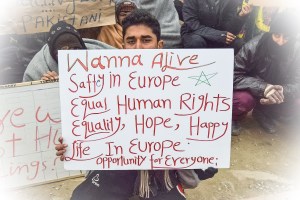 PAKISTAN!
Wanna Alive
Safty in Europe
Equal Human Rights
Equality, Hope, Happy
life In Europe.
Opportunity for Everyone;